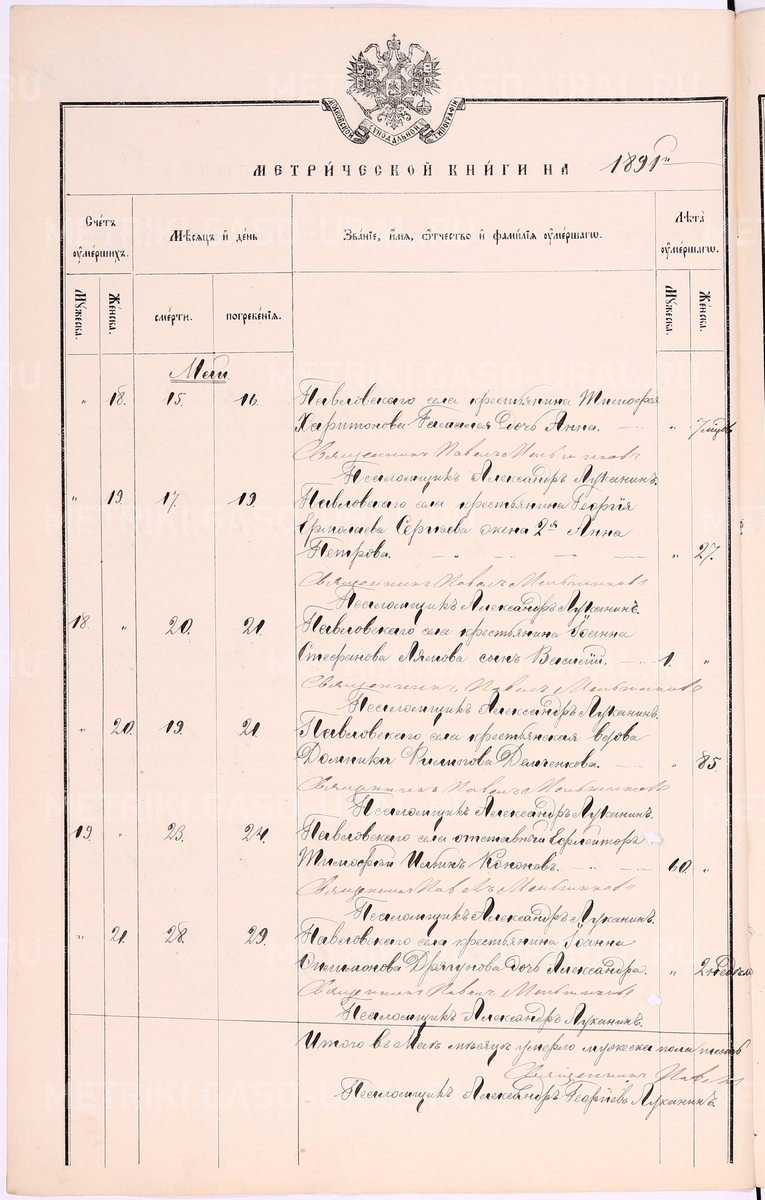 МОСКОВСКОЙ СѴНОДАЛЬНОЙ ТИПОГРАФІИ
МЕТРИ́ЧЕСКОЙ КНИ́ГИ НА 1891 г.
Сче́тъ ᲂу҆ме́ршихъ.
Мѣ́сяцъ и҆ де́нь
Зва́нїе, и҆́мя, ѻ҆́тчество и҆ фами́лїя ᲂу҆ме́ршагѡ.
Лѣта̀ ᲂу҆ме́ршагѡ.
Му́жеска.
Же́нска.
сме́рти.
погребе́нїя.
Му́жеска.
Же́нска.
Май
" 18. 15. 16. Павловскаго села крестьянина Тимофея
Харитонова дочь Анна. " 7 мцевъ
Священникъ Павелъ Мельниковъ
Псаломщикъ Александръ Луканинъ.
" 19. 17. 19. Павловскаго села крестьянина Георгія
Ермолаева Сергѣева жена 2я Анна
Петрова. " 27.
Священникъ Павелъ Мельниковъ
Псаломщикъ Александръ Луканинъ.
18. " 20. 21. Павловскаго села крестьянина Іоанна
Стефанова Лямова сынъ Василій. 1. "
Священникъ Павелъ Мельниковъ
Псаломщикъ Александръ Луканинъ.
" 20. 19. 21. Павловскаго села крестьянская вдова
Домника Филипова Демченкова. " 85.
Священникъ Павелъ Мельниковъ
Псаломщикъ Александръ Луканинъ.
19. " 23. 24. Павловскаго села отставный Ефрейторъ
Тимофей Ильинъ Кононовъ. 60. "
Священникъ Павелъ Мельниковъ
Псаломщикъ Александръ Луканинъ.
" 21. 28. 29. Павловскаго села крестьянина Іоанна
Филимонова Драгунова дочь Александра. " 2 недѣли
Священникъ Павелъ Мельниковъ
Псаломщикъ Александръ Луканинъ.
Итого въ Маѣ мѣсяцѣ умерло мужеска пола
Священникъ Павелъ
Псаломщикъ Александръ Георгіевъ Луканинъ.